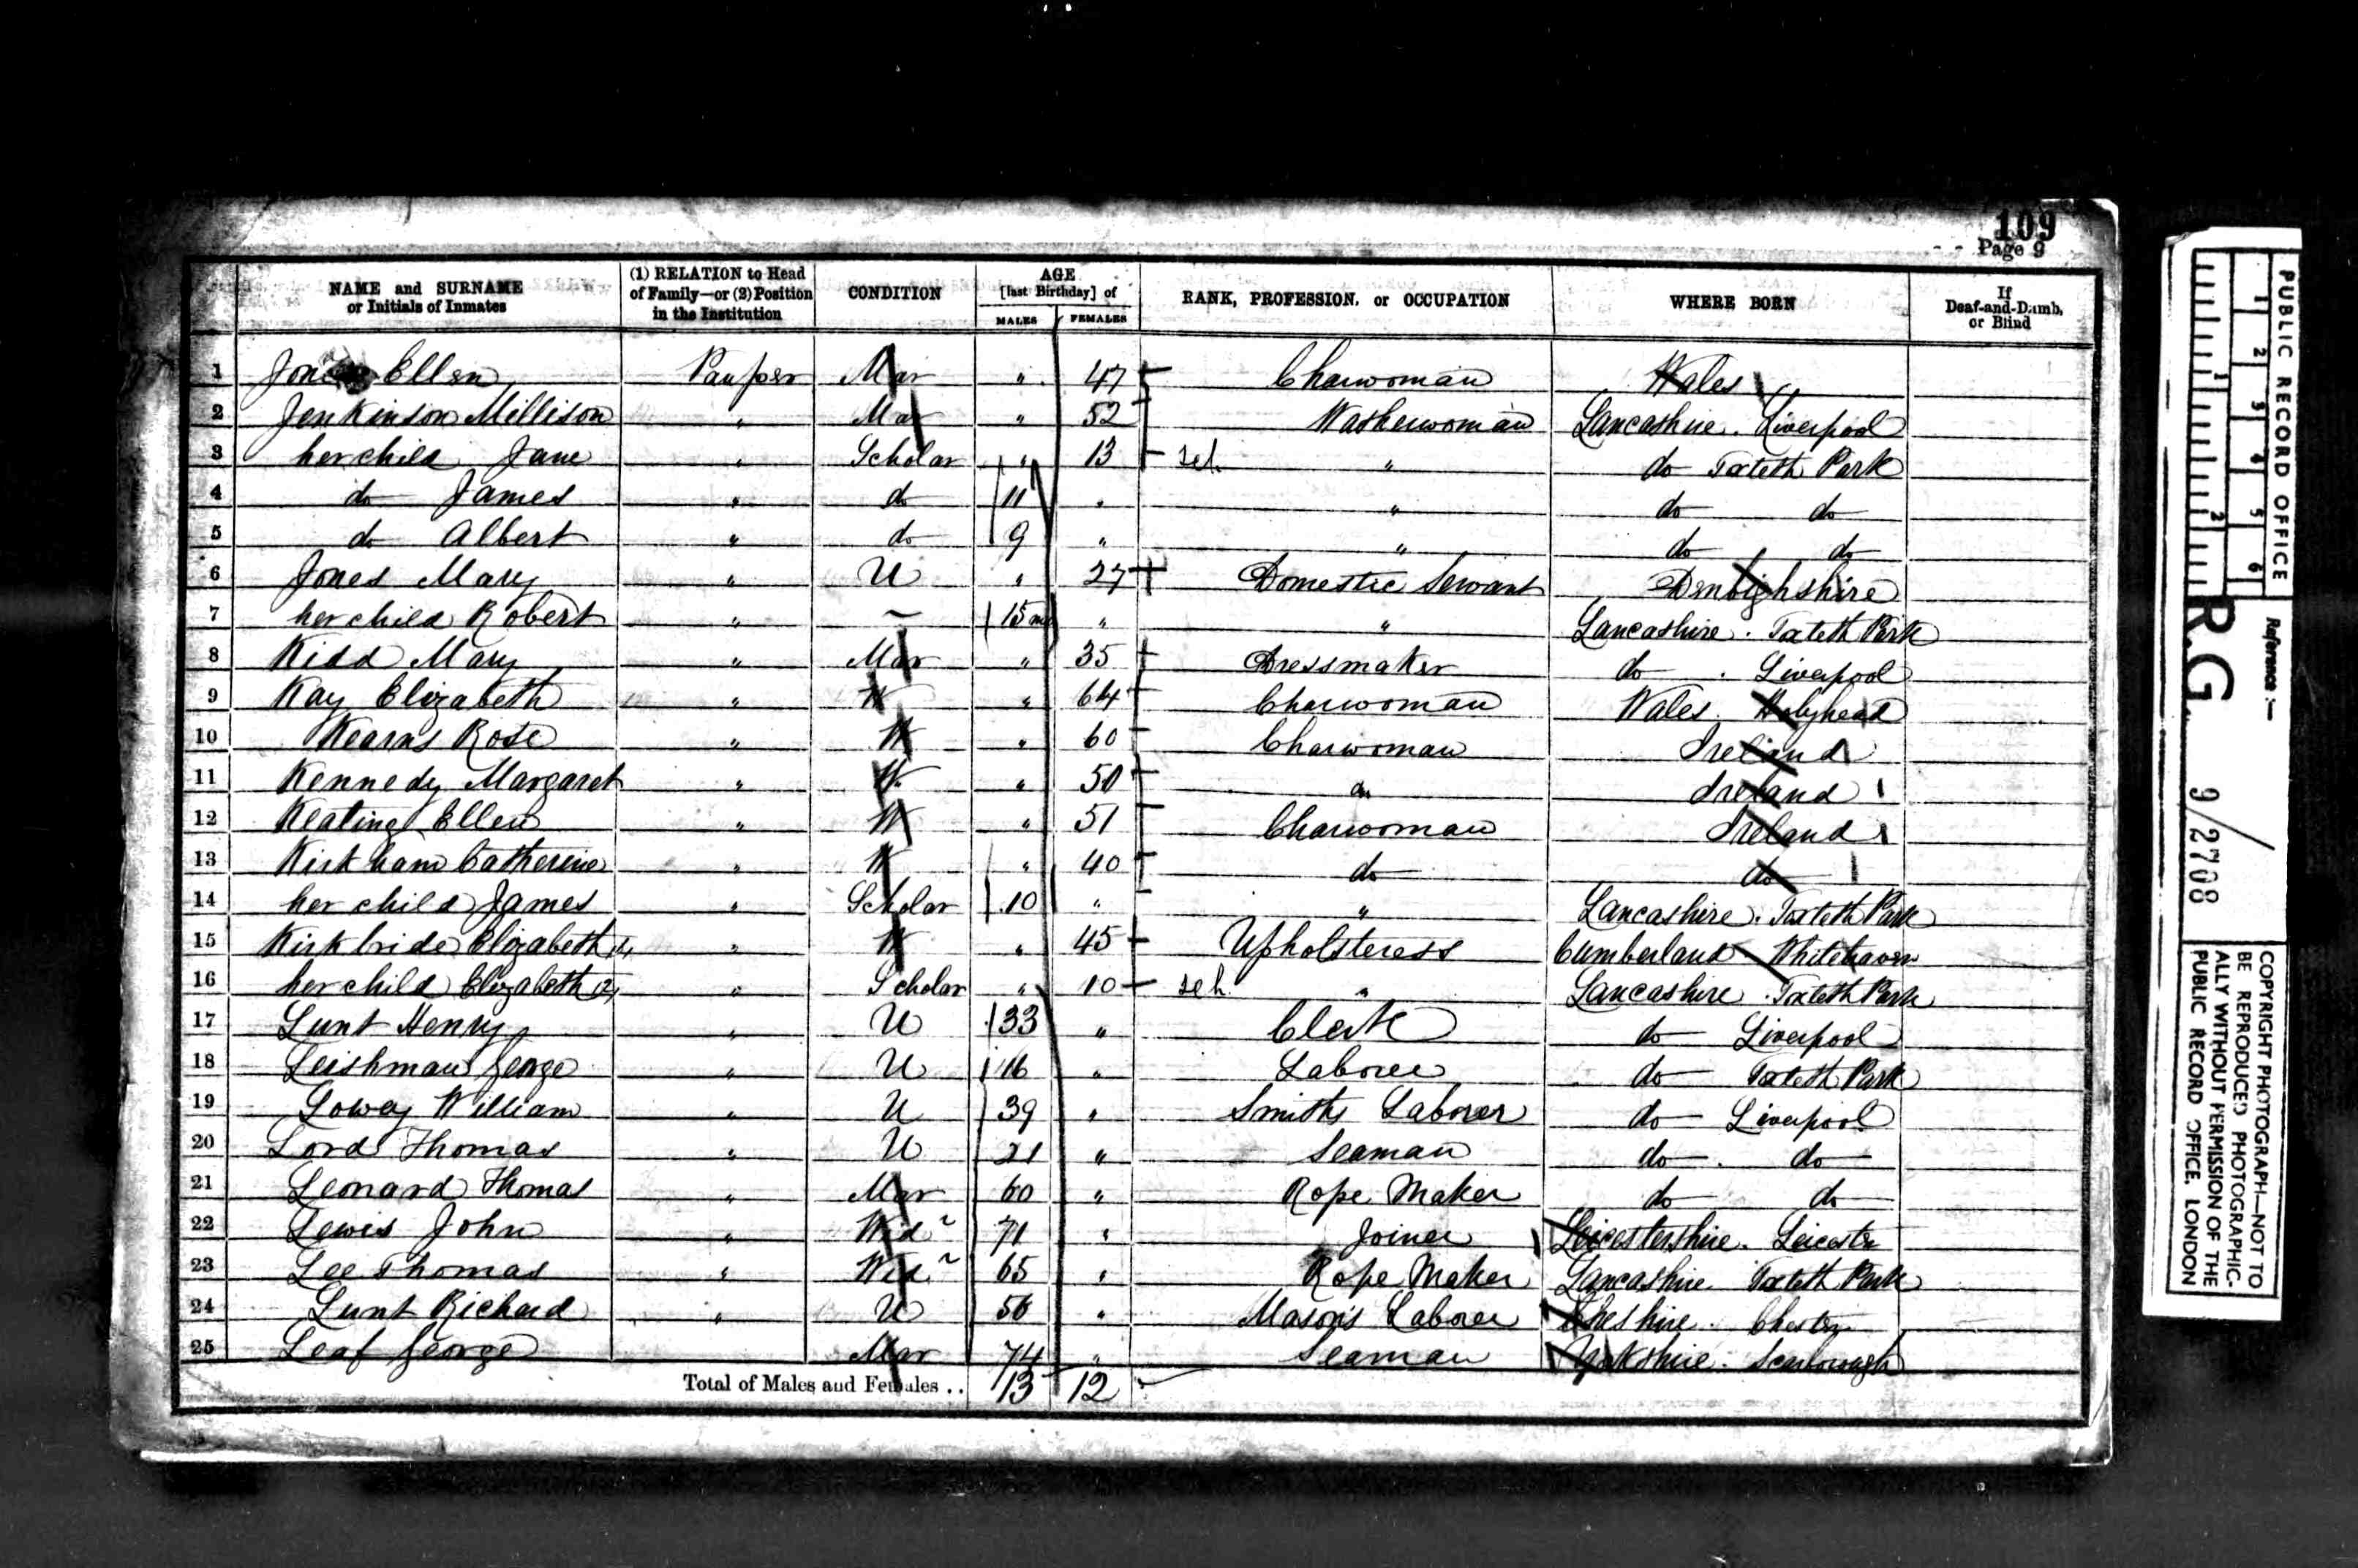 109
Page 9
NAME and SURNAME or Initials of Inmates (1) RELATION to Head of Family—or (2) Position in the Institution CONDITION AGE [last Birthday] of MALES FEMALES RANK, PROFESSION, or OCCUPATION WHERE BORN If Deaf-and-Dumb, or Blind
1 Jones Ellen Pauper Mar " 47 Charwoman Wales
2 Jenkinson Millison " Mar " 52 Washerwoman Lancashire. Liverpool
3 her child Jane " Scholar " 13 " do Toxteth Park
4 do James " do 11 " " do do
5 do Albert " do 9 " " do do
6 Jones Mary " U " 27 Domestic Servant Denbighshire
7 her child Robert " – 15 mo " " Lancashire. Toxteth Park
8 Kidd Mary " Mar " 35 Dressmaker do . Liverpool
9 Kay Elizabeth " W " 64 Charwoman Wales. Holyhead
10 Kearns Rose " W " 60 Charwoman Ireland
11 Kennedy Margaret " W " 50 do Ireland
12 Keating Ellen " W " 51 Charwoman Ireland
13 Kirkham Catherine " W " 40 do do
14 her child James " Scholar 10 " " Lancashire. Toxteth Park
15 Kirkbride Elizabeth (1) " W " 45 Upholsteress Cumberland Whitehaven
16 her child Elizabeth (2) " Scholar " 10 sch " Lancashire. Toxteth Park
17 Lunt Henry " U 33 " Clerk do Liverpool
18 Leishman George " U 16 " Laborer do Toxteth Park
19 Lowey William " U 39 " Smiths Laborer do Liverpool
20 Lord Thomas " U 21 " Seaman do . do
21 Leonard Thomas " Mar 60 " Rope Maker do do
22 Lewis John " Wid r 71 " Joiner Leicestershire. Leicester
23 Lee Thomas " Wid r 65 " Rope Maker Lancashire Toxteth Park
24 Lunt Richard " U 56 " Mason's Laborer Cheshire. Chester
25 Leaf George Mar 74 " Seaman Yorkshire. Scarborough
Total of Males and Females .. 13 12
PUBLIC RECORD OFFICE
1 2 3 4 5 6
1 2
Reference :—
R.G. 9/2708
COPYRIGHT PHOTOGRAPH—NOT TO
BE REPRODUCED PHOTOGRAPHIC-
ALLY WITHOUT PERMISSION OF THE
PUBLIC RECORD OFFICE, LONDON